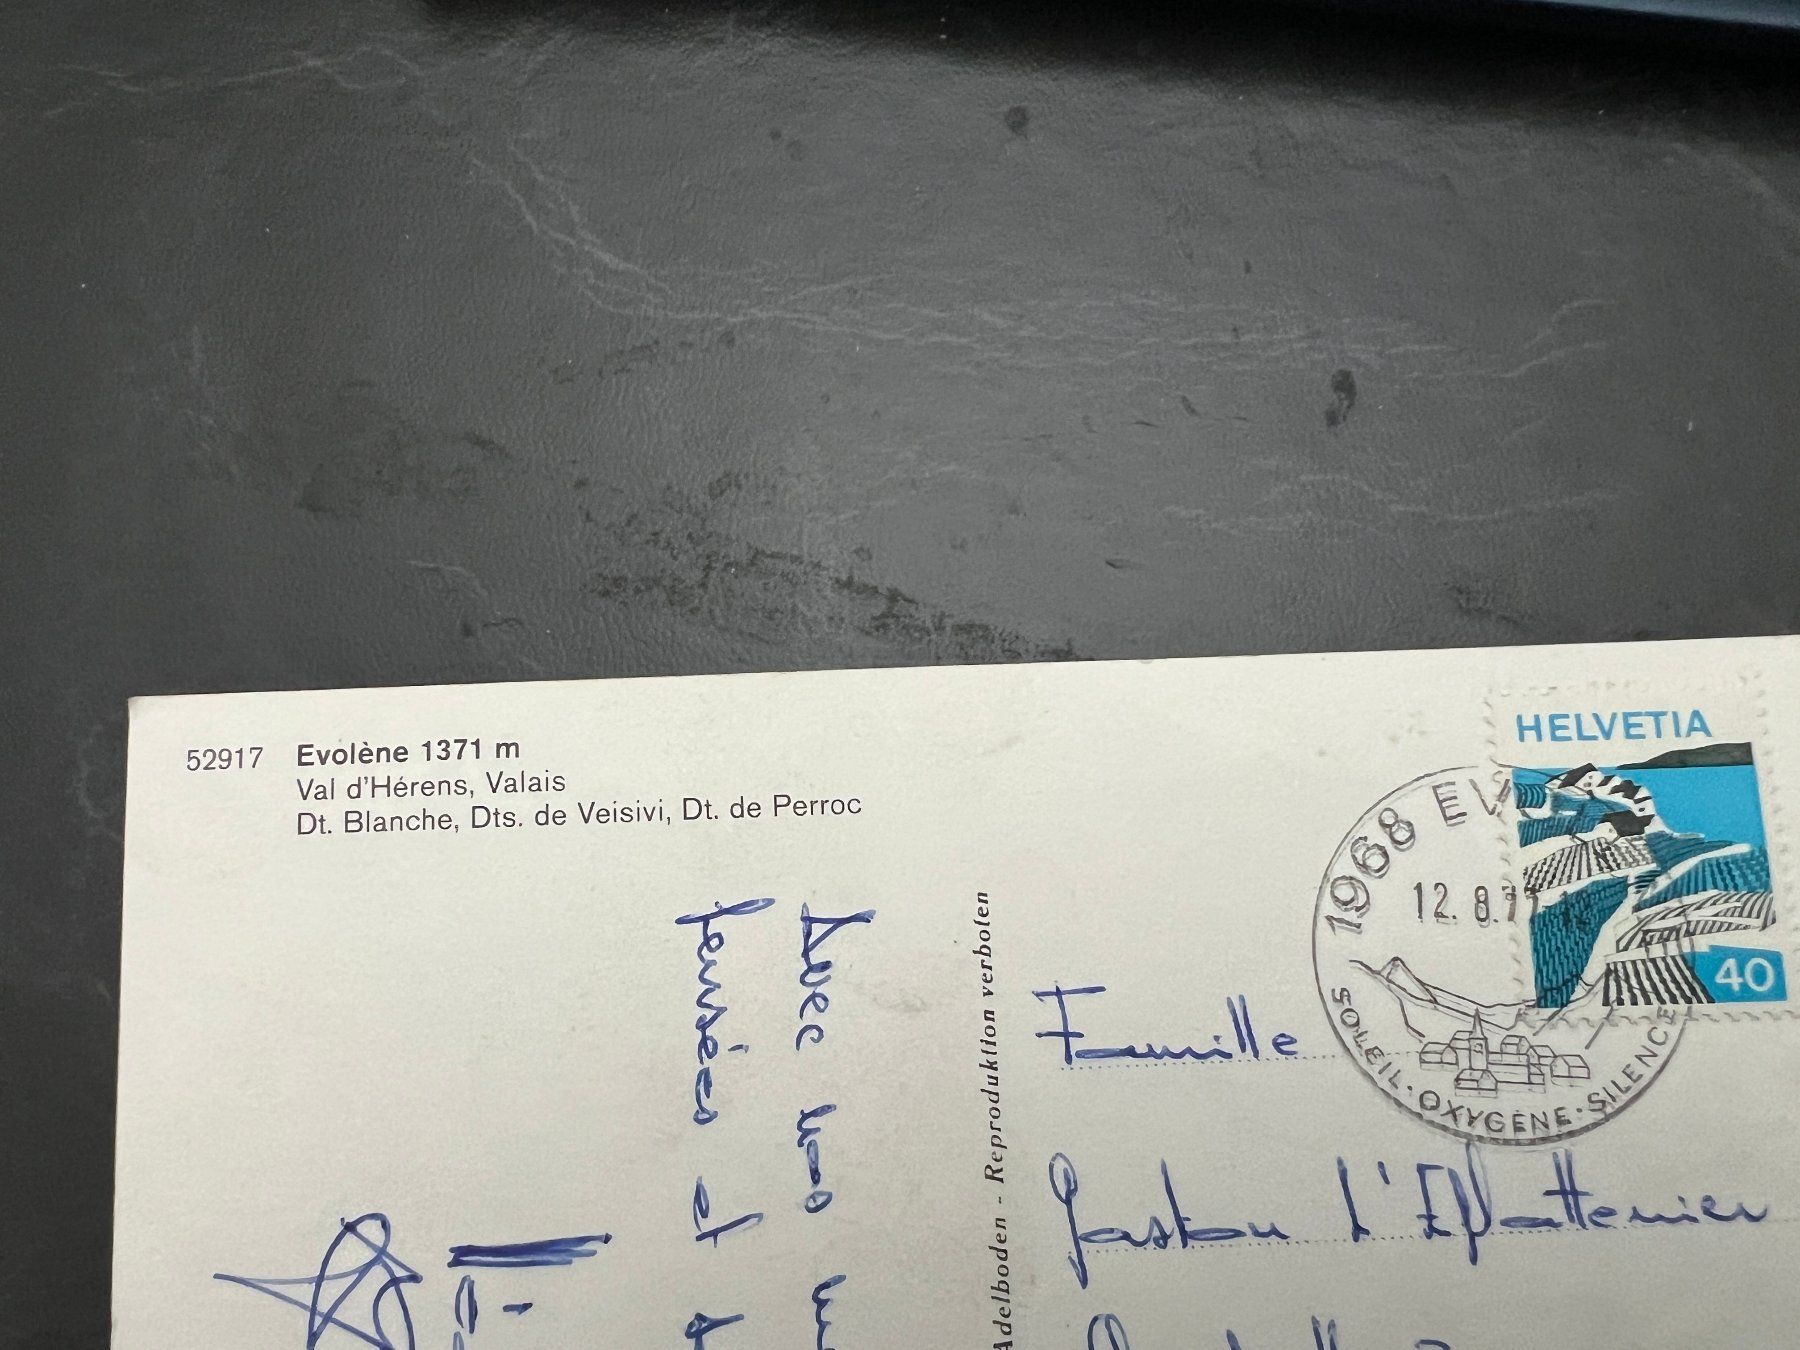 52917 Evolène 1371 m
Val d'Hérens, Valais
Dt. Blanche, Dts. de Veisivi, Dt. de Perroc
HELVETIA
40
1968 EV
12. 8.
SOLEIL · OXYGENE · SILENCE
Adelboden - Reproduktion verboten
Avec nos
pensées et
Famille
Gaston l'Eplattenier